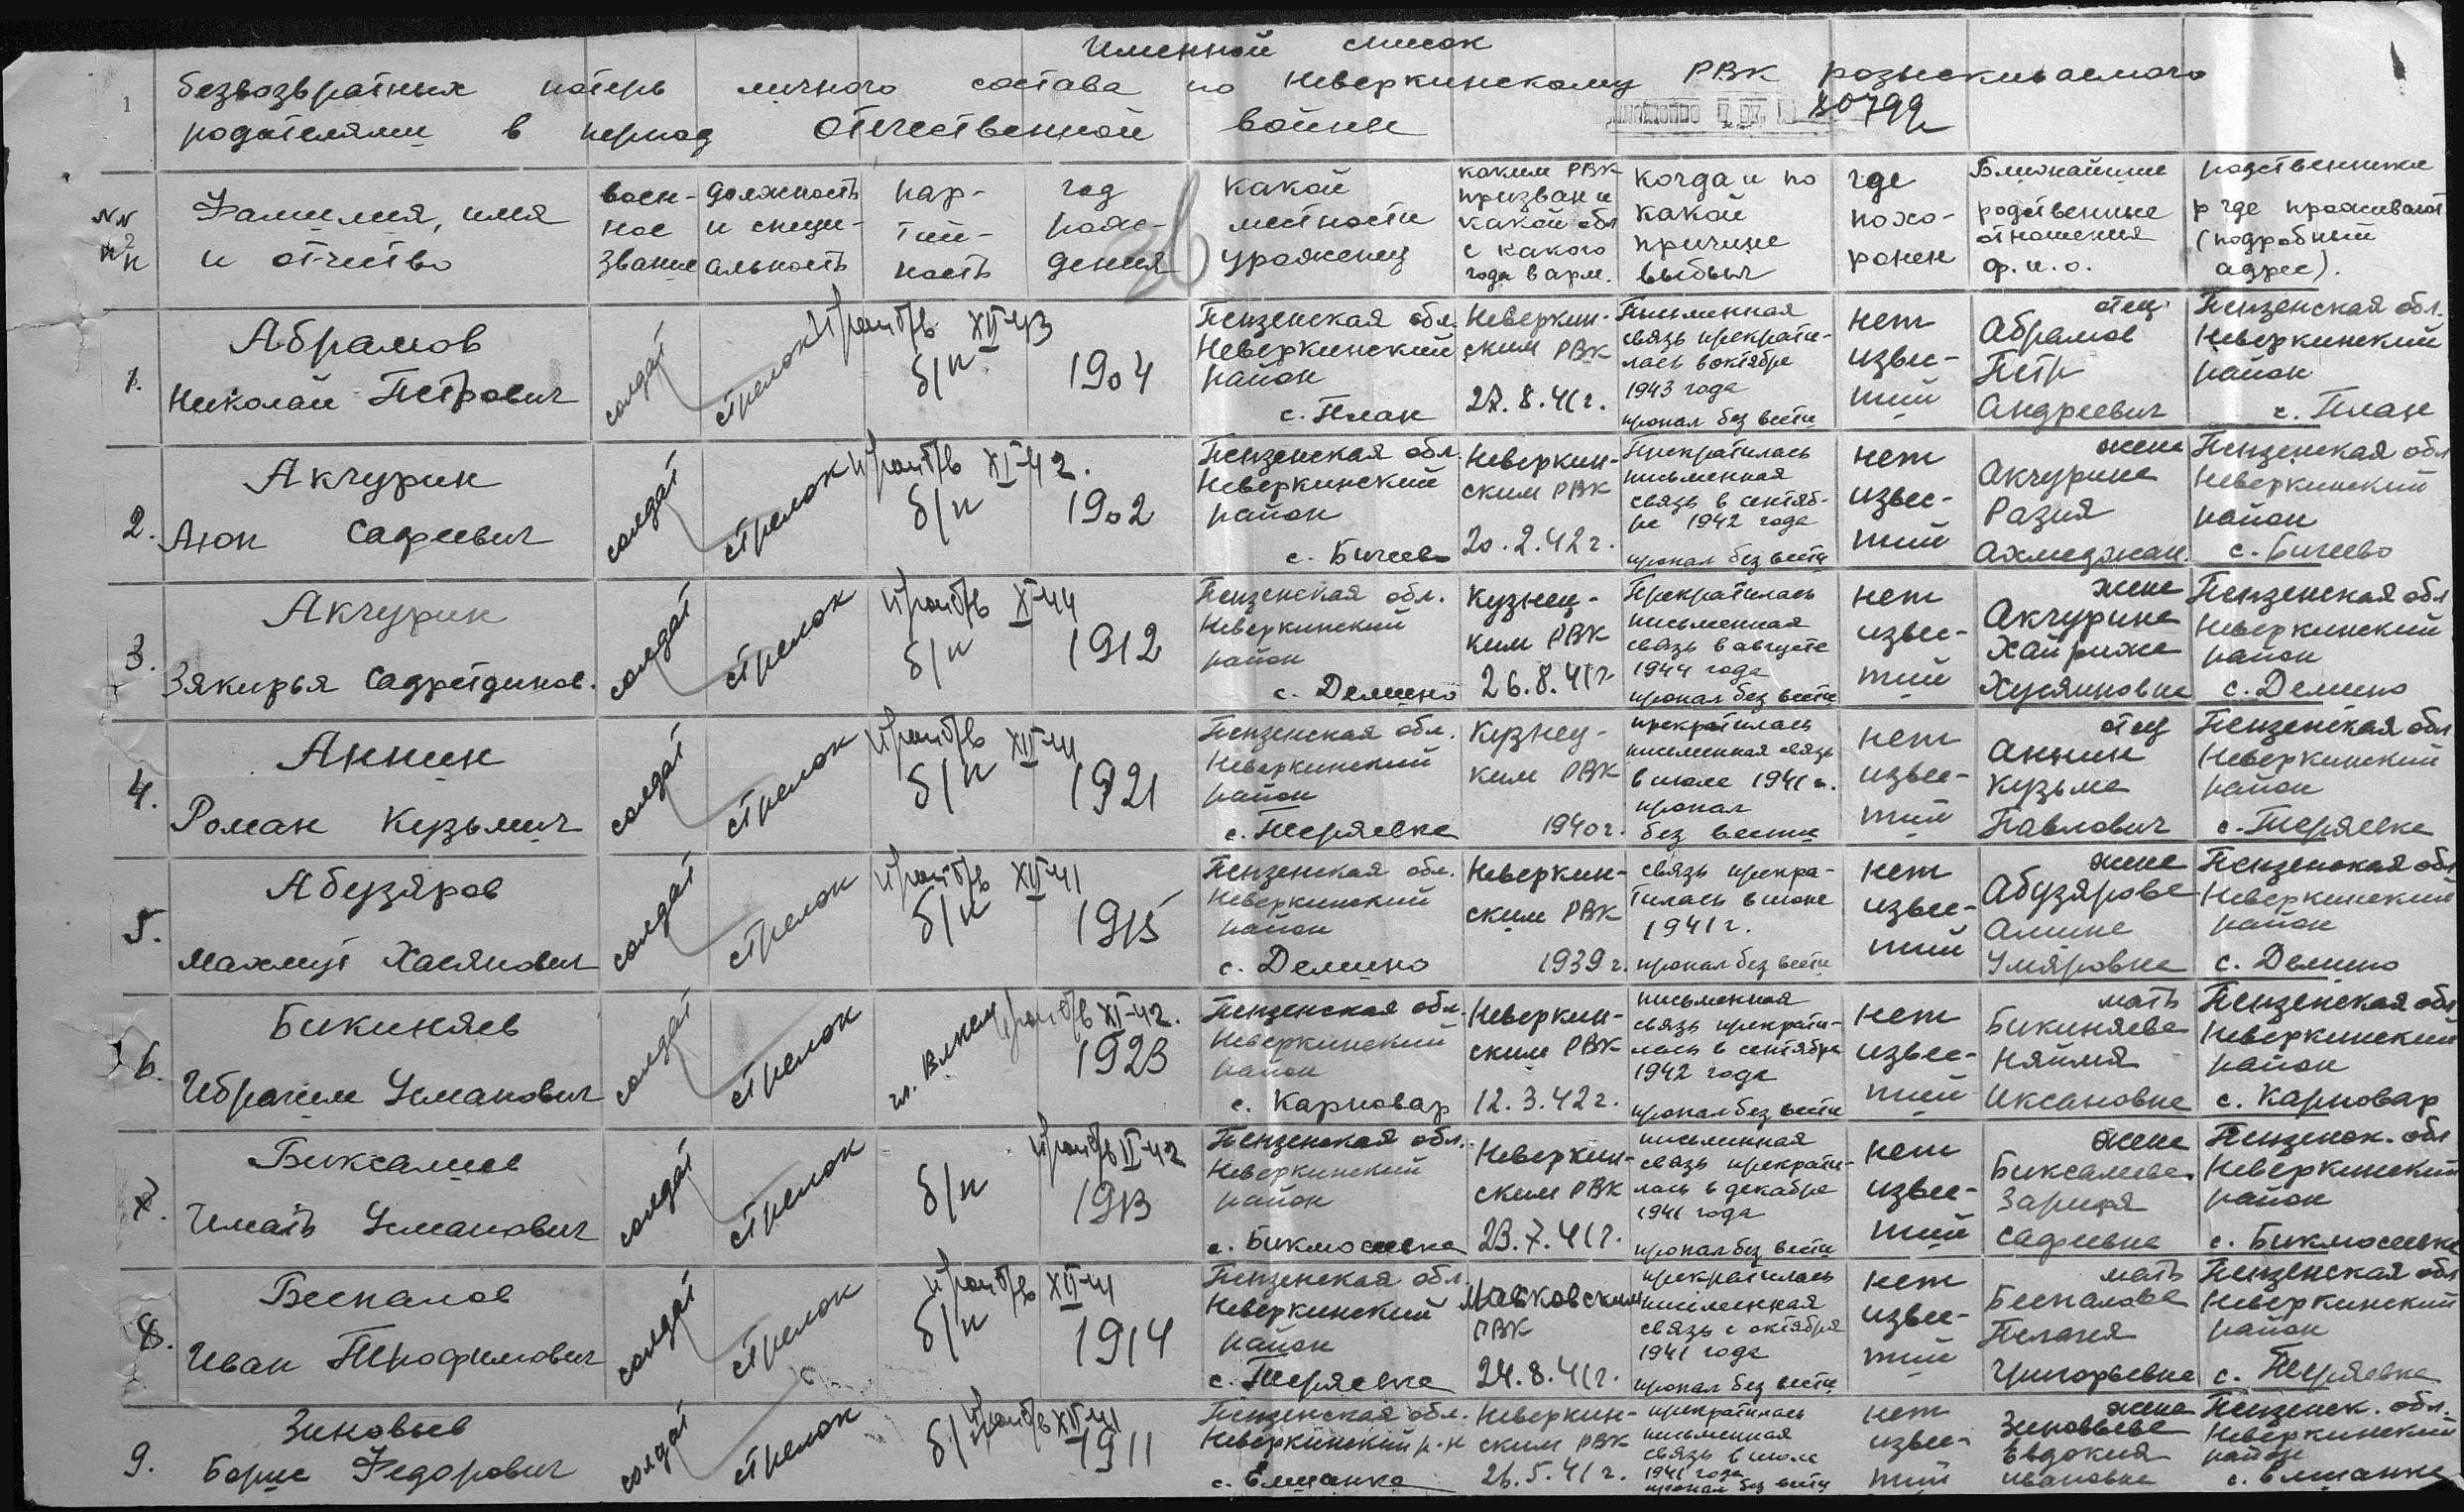 Именной список
безвозвратных потерь личного состава по Неверкинскому РВК розыскиваемого
родителями в период Отечественной войны
80799
№№ п/п
Фамилия, имя и отчество
воен-ное звание
должность и специ-альность
пар-тий-ность
год рож-дения
какой местности уроженец
каким РВК призван и какой обл с какого года в арм.
когда и по какой причине выбыл
где похо-ронен
Ближайшие родственники
родственные отношения ф.и.о.
и где проживают (подробный адрес).
1. Абрамов Николай Петрович
солдат
стрелок
проп б/в XII-43
б/п
1904
Пензенская обл. Неверкинский район с. План
Неверкин-ским РВК 27.8.41г.
Письменная связь прекрати-лась в октябре 1943 года пропал без вести
нет извес-тий
отец Абрамов Петр Андреевич
Пензенская обл. Неверкинский район с. План
2. Акчурин Аюп Сафеевич
солдат
стрелок
проп б/в XI-42.
б/п
1902
Пензенская обл. Неверкинский район с. Бигеево
Неверкин-ским РВК 20.2.42г.
Прекратилась письменная связь в сентяб-ре 1942 года пропал без вести
нет извес-тий
жена Акчурина Разия Ахмеджан.
Пензенская обл Неверкинский район с. Бигеево
3. Акчурин Зякирья Садретдинов.
солдат
стрелок
проп б/в X-44
б/п
1912
Пензенская обл. Неверкинский район с. Демино
Кузнец-ким РВК 26.8.41г
Прекратилась письменная связь в августе 1944 года пропал без вести
нет извес-тий
жена Акчурина Хайрижа Хусяиновна
Пензенская обл Неверкинский район с. Демино
4. Аннин Роман Кузьмич
солдат
стрелок
проп б/в XII-41
б/п
1921
Пензенская обл. Неверкинский район с. Шеряевка
Кузнец-ким РВК 1940г.
прекратилась письменная связь в июле 1941 г. пропал без вести
нет извес-тий
отец Аннин Кузьма Павлович
Пензенская обл Неверкинский район с. Шеряевка
5. Абузяров Махмут Хасянович
солдат
стрелок
проп б/в XII-41
б/п
1915
Пензенская обл. Неверкинский район с. Демино
Неверкин-ским РВК 1939г.
связь прекра-тилась в июне 1941г. пропал без вести
нет извес-тий
жена Абузярова Амине Умяровна
Пензенская обл Неверкинский район с. Демино
6. Бикиняев Ибрагим Усманович
солдат
стрелок
чл. ВЛКСМ
проп б/в XI-42.
1923
Пензенская обл. Неверкинский район с. Карновар
Неверкин-ским РВК 12.3.42г.
письменная связь прекрати-лась в сентябре 1942 года пропал без вести
нет извес-тий
мать Бикиняева Няймя Иксановна
Пензенская обл Неверкинский район с. Карновар
7. Биксалиев Исмаил Усманович
солдат
стрелок
проп б/в II-42
б/п
1913
Пензенская обл. Неверкинский район с. Бикмосеевка
Неверкин-ским РВК 23.7.41г.
письменная связь прекрати-лась в декабре 1941 года пропал без вести
нет извес-тий
жена Биксалиева Зарифя Сафеевна
Пензенск. обл Неверкинский район с. Бикмосеевка
8. Беспалов Иван Трофимович
солдат
стрелок
проп б/в XII-41
б/п
1914
Пензенская обл. Неверкинский район с. Шеряевка
РВК 24.8.41г.
прекратилась письменная связь с октября 1941 года пропал без вести
нет извес-тий
мать Беспалова Пелагея Григорьевна
Пензенская обл Неверкинский район с. Шеряевка
9. Зиновьев Борис Федорович
солдат
стрелок
проп б/в XII-41
б/
1911
Пензенская обл. Неверкинский р-н с. Елшанка
Неверкин-ским РВК 26.5.41г.
прекратилась письменная связь в июле 1941 года пропал без вести
нет извес-тий
жена Зиновьева Евдокия Ивановна
Пензенск. обл. Неверкинский район с. Елшанка